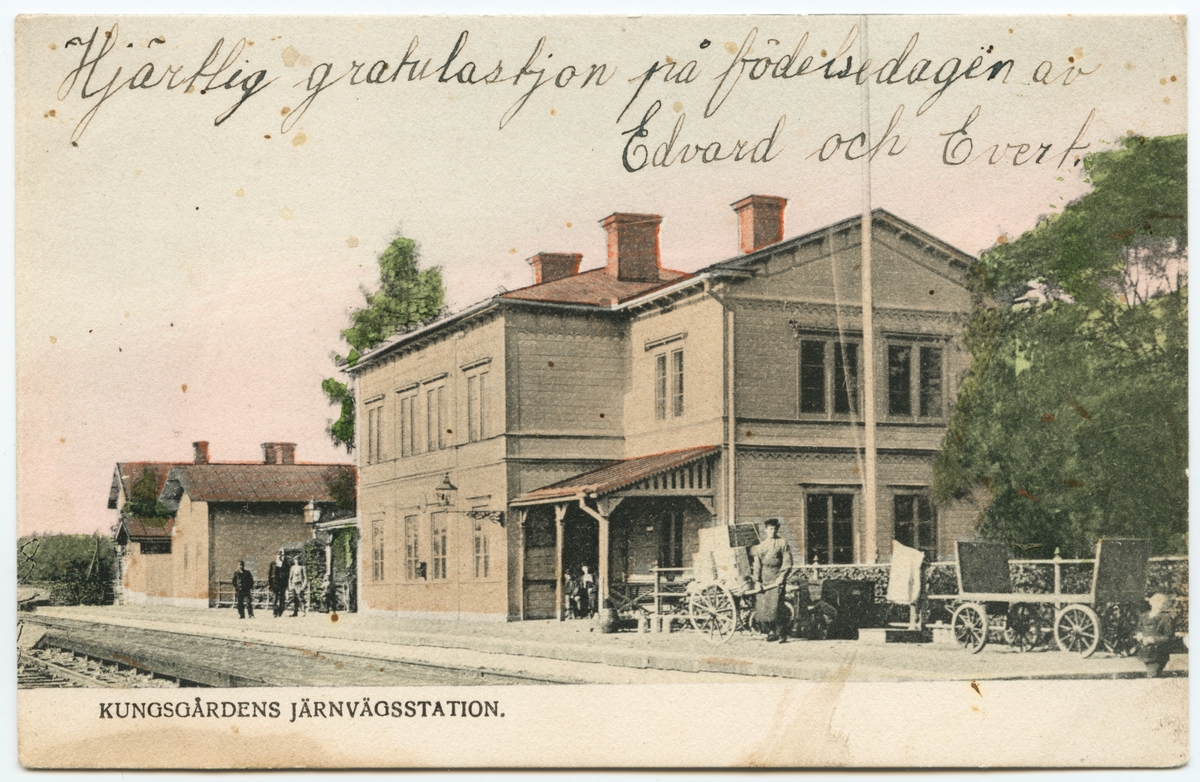 Hjärtlig gratulastjon på födelsedagen av
Edvard och Evert.
KUNGSGÅRDENS JÄRNVÄGSSTATION.